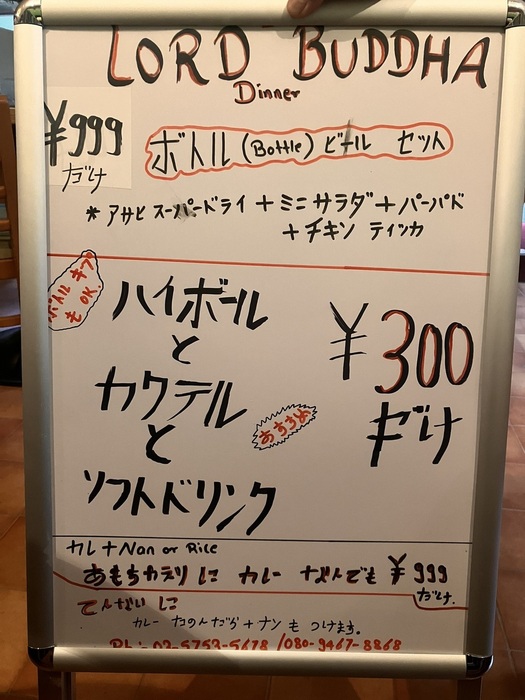 LORD BUDDHA
Dinner
¥999
だけ
ボトル (Bottle) ビール セット
* アサヒ スーパードライ + ミニ サラダ + パーパド
+ チキン ティッカ
ボトル キープ
も OK.
ハイボール
と
カクテル
と
ソフトドリンク
おすすめ
¥300
だけ
カレ + Nan or Rice
おもちかえり に カレー なんでも ¥999
だけ.
てんない に
カレー たのんだら + ナン も つけます。
Ph:- 03-5753-5678 / 080-9467-8868